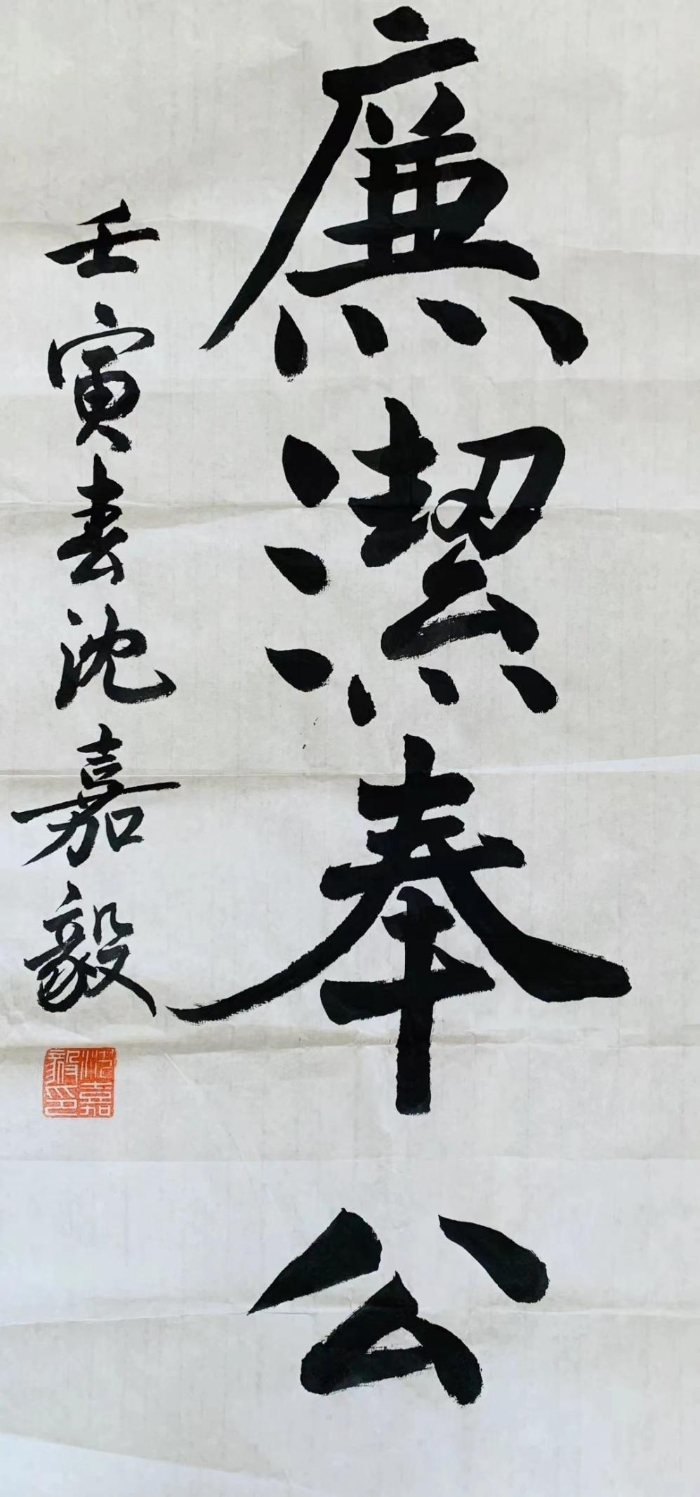 廉潔奉公
壬寅春沈嘉毅
沈嘉毅印